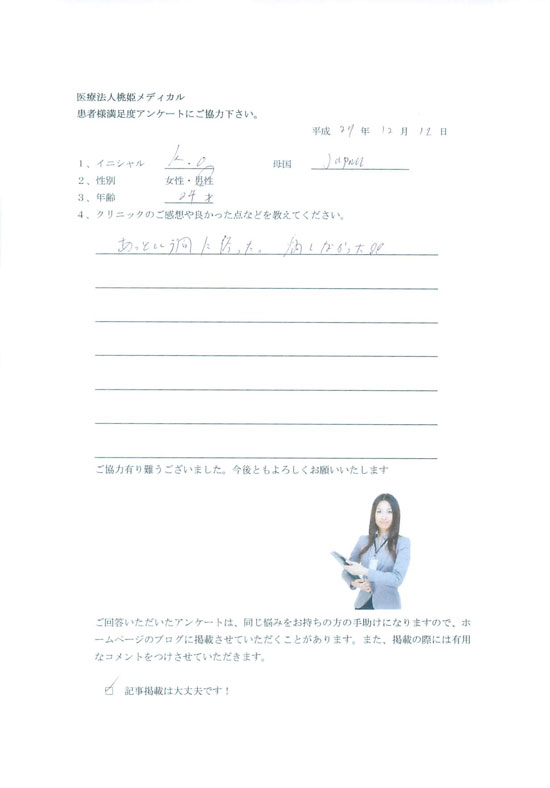 医療法人桃姫メディカル
患者様満足度アンケートにご協力下さい。
平成 29 年 12 月 12 日
1、イニシャル K.O 母国 Japan
2、性別 女性・男性
3、年齢 24才
4、クリニックのご感想や良かった点などを教えてください。
あっという間に終った。 痛くなかった
ご協力有り難うございました。今後ともよろしくお願いいたします
ご回答いただいたアンケートは、同じ悩みをお持ちの方の手助けになりますので、ホ
ームページのブログに掲載させていただくことがあります。また、掲載の際には有用
なコメントをつけさせていただきます。
記事掲載は大丈夫です！